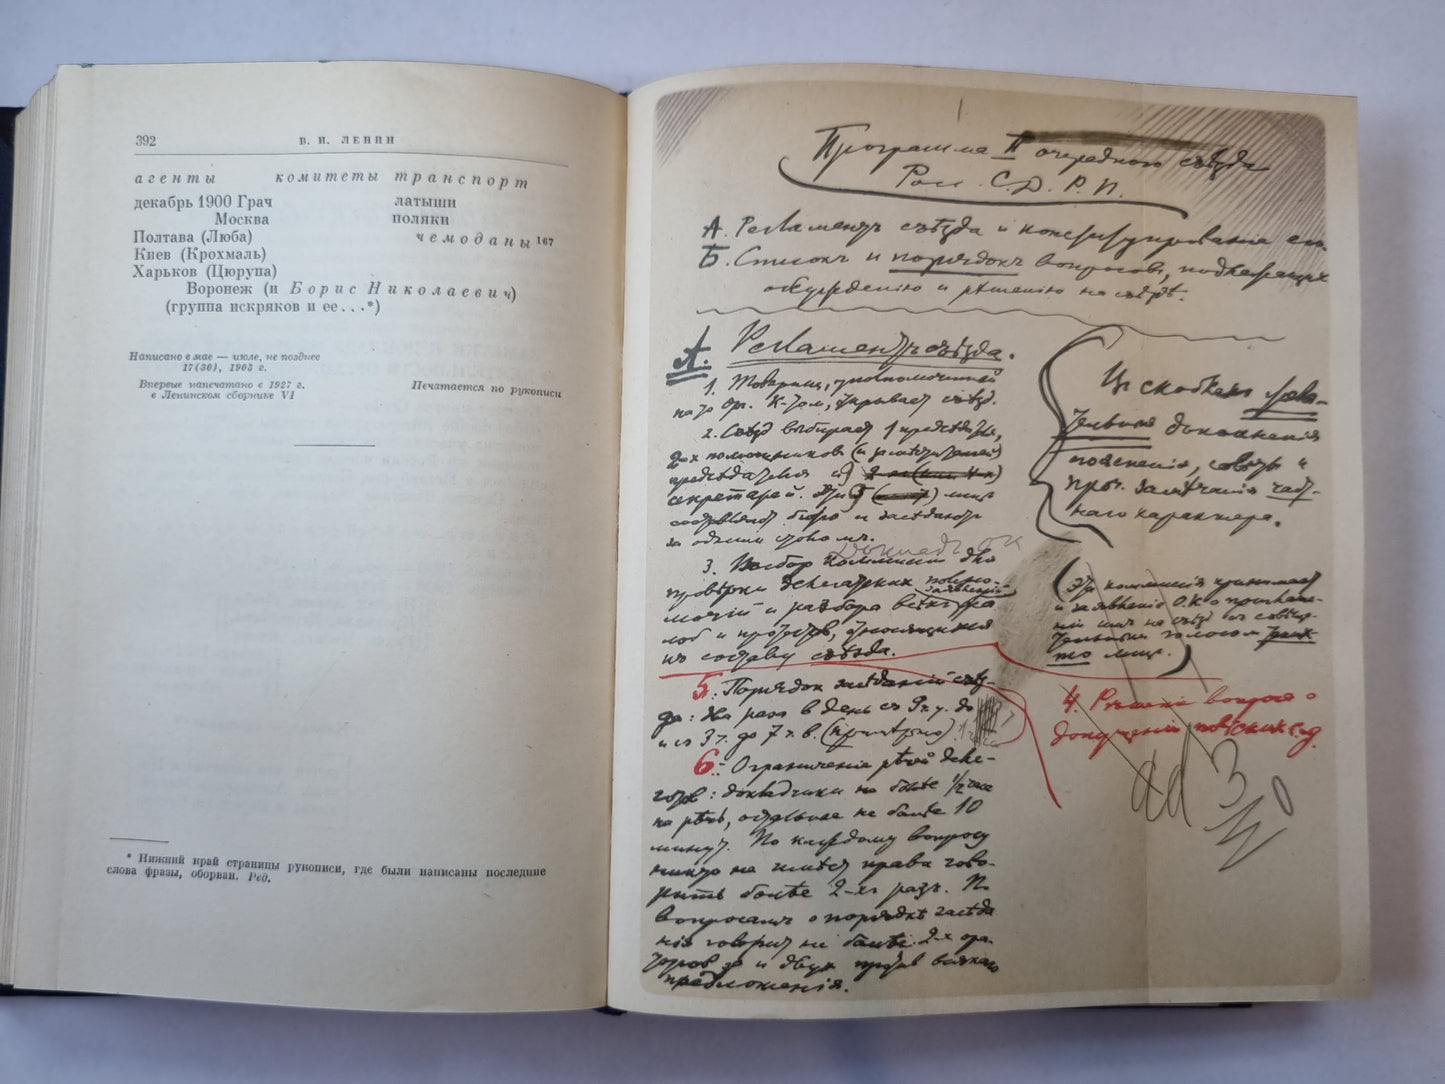 392
В. И. ЛЕНИН
агенты комитеты транспорт
декабрь 1900 Грач латыши
Москва поляки
Полтава (Люба) чемоданы 167
Киев (Крохмаль)
Харьков (Цюрупа)
Воронеж (и Борис Николаевич)
(группа искряков и ее . . .*)
Написано в мае — июле, не позднее
17(30), 1903 г.
Впервые напечатано в 1927 г. Печатается по рукописи
в Ленинском сборнике VI
* Нижний край страницы рукописи, где были написаны последние
слова фразы, оборван. Ред.
Программа II очередного съѣзда
Росс. С.Д.Р.П.
А. Регламентъ съѣзда и конституированіе его.
Б. Списокъ и порядокъ вопросовъ, подлежащихъ
обсужденію и рѣшенію на съѣздѣ.
А. Регламентъ съѣзда.
1. Товарищ, уполномоченный
на то Орг. К-том, открывает съѣзд.
2. Съѣзд выбирает 1 председателя,
2-ух помощников (и заместителей)
председателя и
секретарей. Эти лиц
составляют бюро и заседают
за одним столом.
Доклад ОК
3. Выбор коммиссии для
провѣрки делегатских полно-
мочий и разбора всѣх
и протестов, относящихся
к составу съѣзда.
5. Порядок заседаний съѣз-
да: два раза в день с 9 ч. у. до
и с 3 ч. до 7 ч. в. (примѣрно).
6. Ограничение рѣчей деле-
гатов: докладчики не болѣе 1/2 часа
на рѣчь, остальные не более 10
минут. По каждому вопросу
никто не имѣет права гово-
рить болѣе 2-хъ разъ. По
вопросамъ о порядкѣ заседа
ния говорят не болѣе 2-х ора-
торов за и двух против всякого
предложенія.
Въ скобках
дополненія
поясненія, совѣты и
проч. замѣчанія част-
наго характера.
(Эта коммиссія принимает
и заявленіе О.К. о приглаше-
нии на съѣзд съ совѣща-
тельным голосом
лиц.)
4. Рѣшение вопроса о
допущении польских с.д.
ad 3